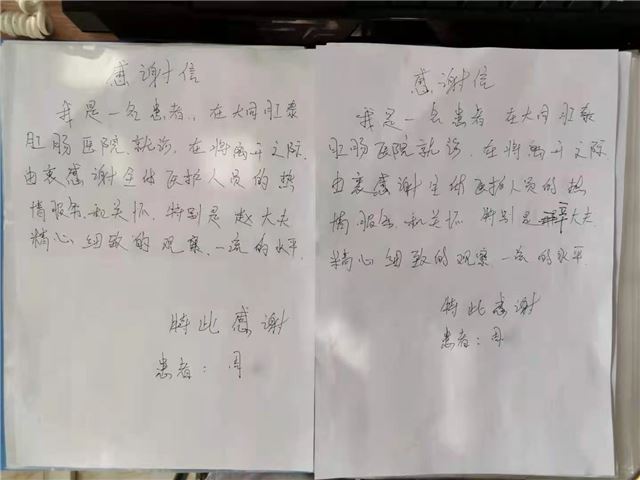 感谢信
我是一名患者，在大同肛泰
肛肠医院就诊，在将离开之际
由衷感谢全体医护人员的热
情服务和关怀，特别是赵大夫
精心细致的观察，一流的水平.
特此感谢
患者：周
感谢信
我是一名患者 在大同肛泰
肛肠医院就诊，在将离开之际
由衷感谢全体医护人员的热
情服务.和关怀 特别是大夫.
精心细致的观察.一流的水平.
特此感谢
患者：周